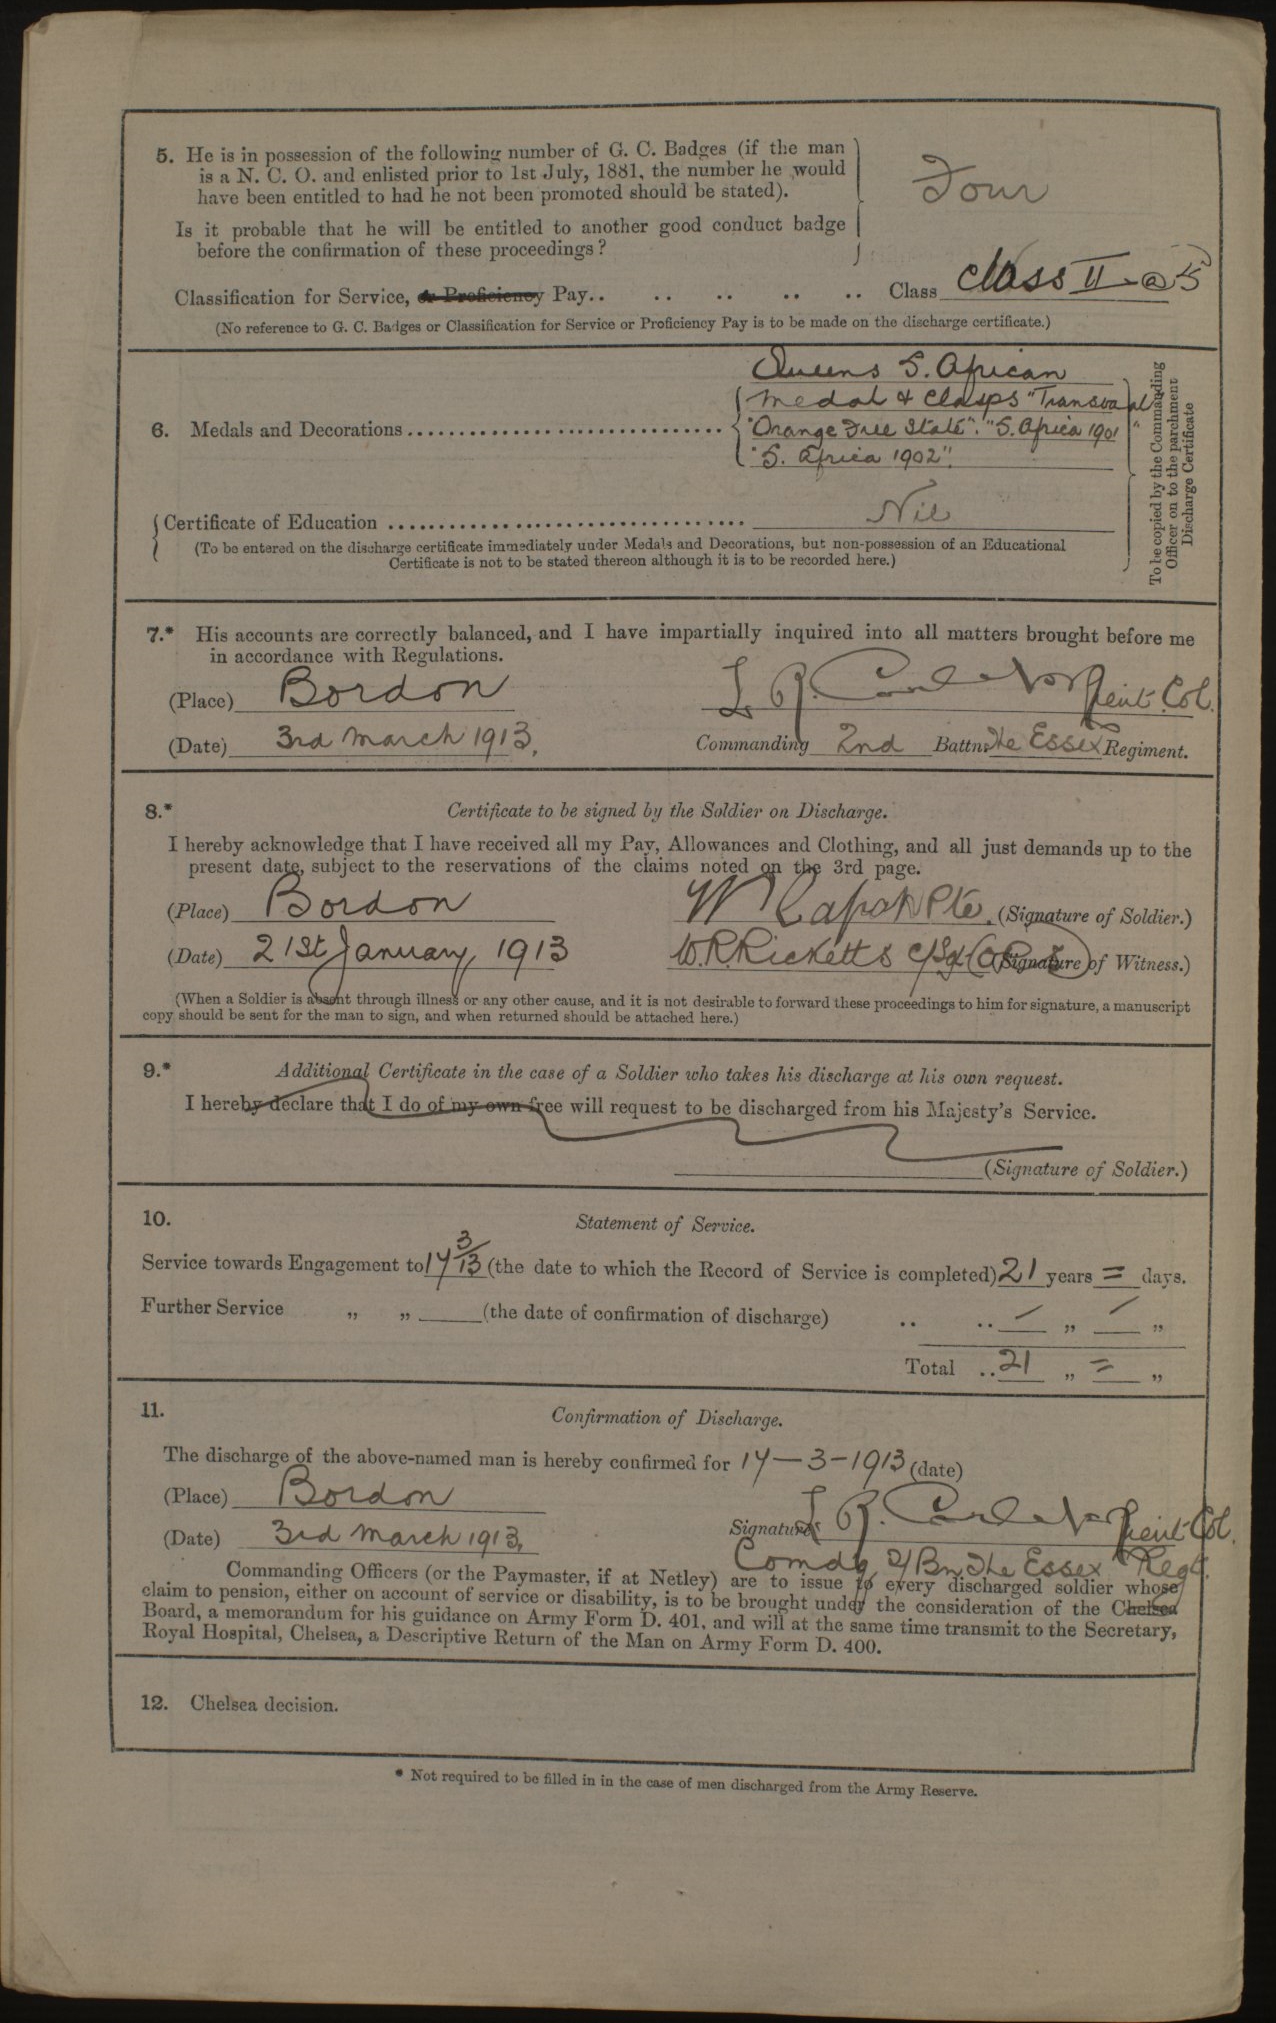 5. He is in possession of the following number of G. C. Badges (if the man
is a N. C. O. and enlisted prior to 1st July, 1881, the number he would
have been entitled to had he not been promoted should be stated).
Four
Is it probable that he will be entitled to another good conduct badge
before the confirmation of these proceedings?
Classification for Service, or Proficiency Pay.. .. .. .. .. Class Class II @ 5
(No reference to G. C. Badges or Classification for Service or Proficiency Pay is to be made on the discharge certificate.)
Queens S. African
Medal & Clasps "Transvaal"
6. Medals and Decorations
"Orange Free State". "S. Africa 1901"
"S. Africa 1902".
To be copied by the Commanding
Officer on to the parchment
Discharge Certificate
Certificate of Education Nil
(To be entered on the discharge certificate immediately under Medals and Decorations, but non-possession of an Educational
Certificate is not to be stated thereon although it is to be recorded here.)
7.* His accounts are correctly balanced, and I have impartially inquired into all matters brought before me
in accordance with Regulations.
(Place) Bordon L R. Lieut. Col.
(Date) 3rd March 1913. Commanding 2nd Battn. The Essex Regiment.
8.* Certificate to be signed by the Soldier on Discharge.
I hereby acknowledge that I have received all my Pay, Allowances and Clothing, and all just demands up to the
present date, subject to the reservations of the claims noted on the 3rd page.
(Place) Bordon W Pte. (Signature of Soldier.)
(Date) 21st January, 1913 W.R. Ricketts (Signature of Witness.)
(When a Soldier is absent through illness or any other cause, and it is not desirable to forward these proceedings to him for signature, a manuscript
copy should be sent for the man to sign, and when returned should be attached here.)
9.* Additional Certificate in the case of a Soldier who takes his discharge at his own request.
I hereby declare that I do of my own free will request to be discharged from his Majesty's Service.
(Signature of Soldier.)
10. Statement of Service.
Service towards Engagement to 14 3/13 (the date to which the Record of Service is completed) 21 years = days.
Further Service „ „ (the date of confirmation of discharge) .. .. / „ / „
Total .. 21 „ = „
11. Confirmation of Discharge.
The discharge of the above-named man is hereby confirmed for 14-3-1913 (date)
(Place) Bordon
(Date) 3rd March 1913. Signature L R. Lieut-Col.
Comdg 2/Bn The Essex Regt.
Commanding Officers (or the Paymaster, if at Netley) are to issue to every discharged soldier whose
claim to pension, either on account of service or disability, is to be brought under the consideration of the Chelsea
Board, a memorandum for his guidance on Army Form D. 401, and will at the same time transmit to the Secretary,
Royal Hospital, Chelsea, a Descriptive Return of the Man on Army Form D. 400.
12. Chelsea decision.
* Not required to be filled in in the case of men discharged from the Army Reserve.